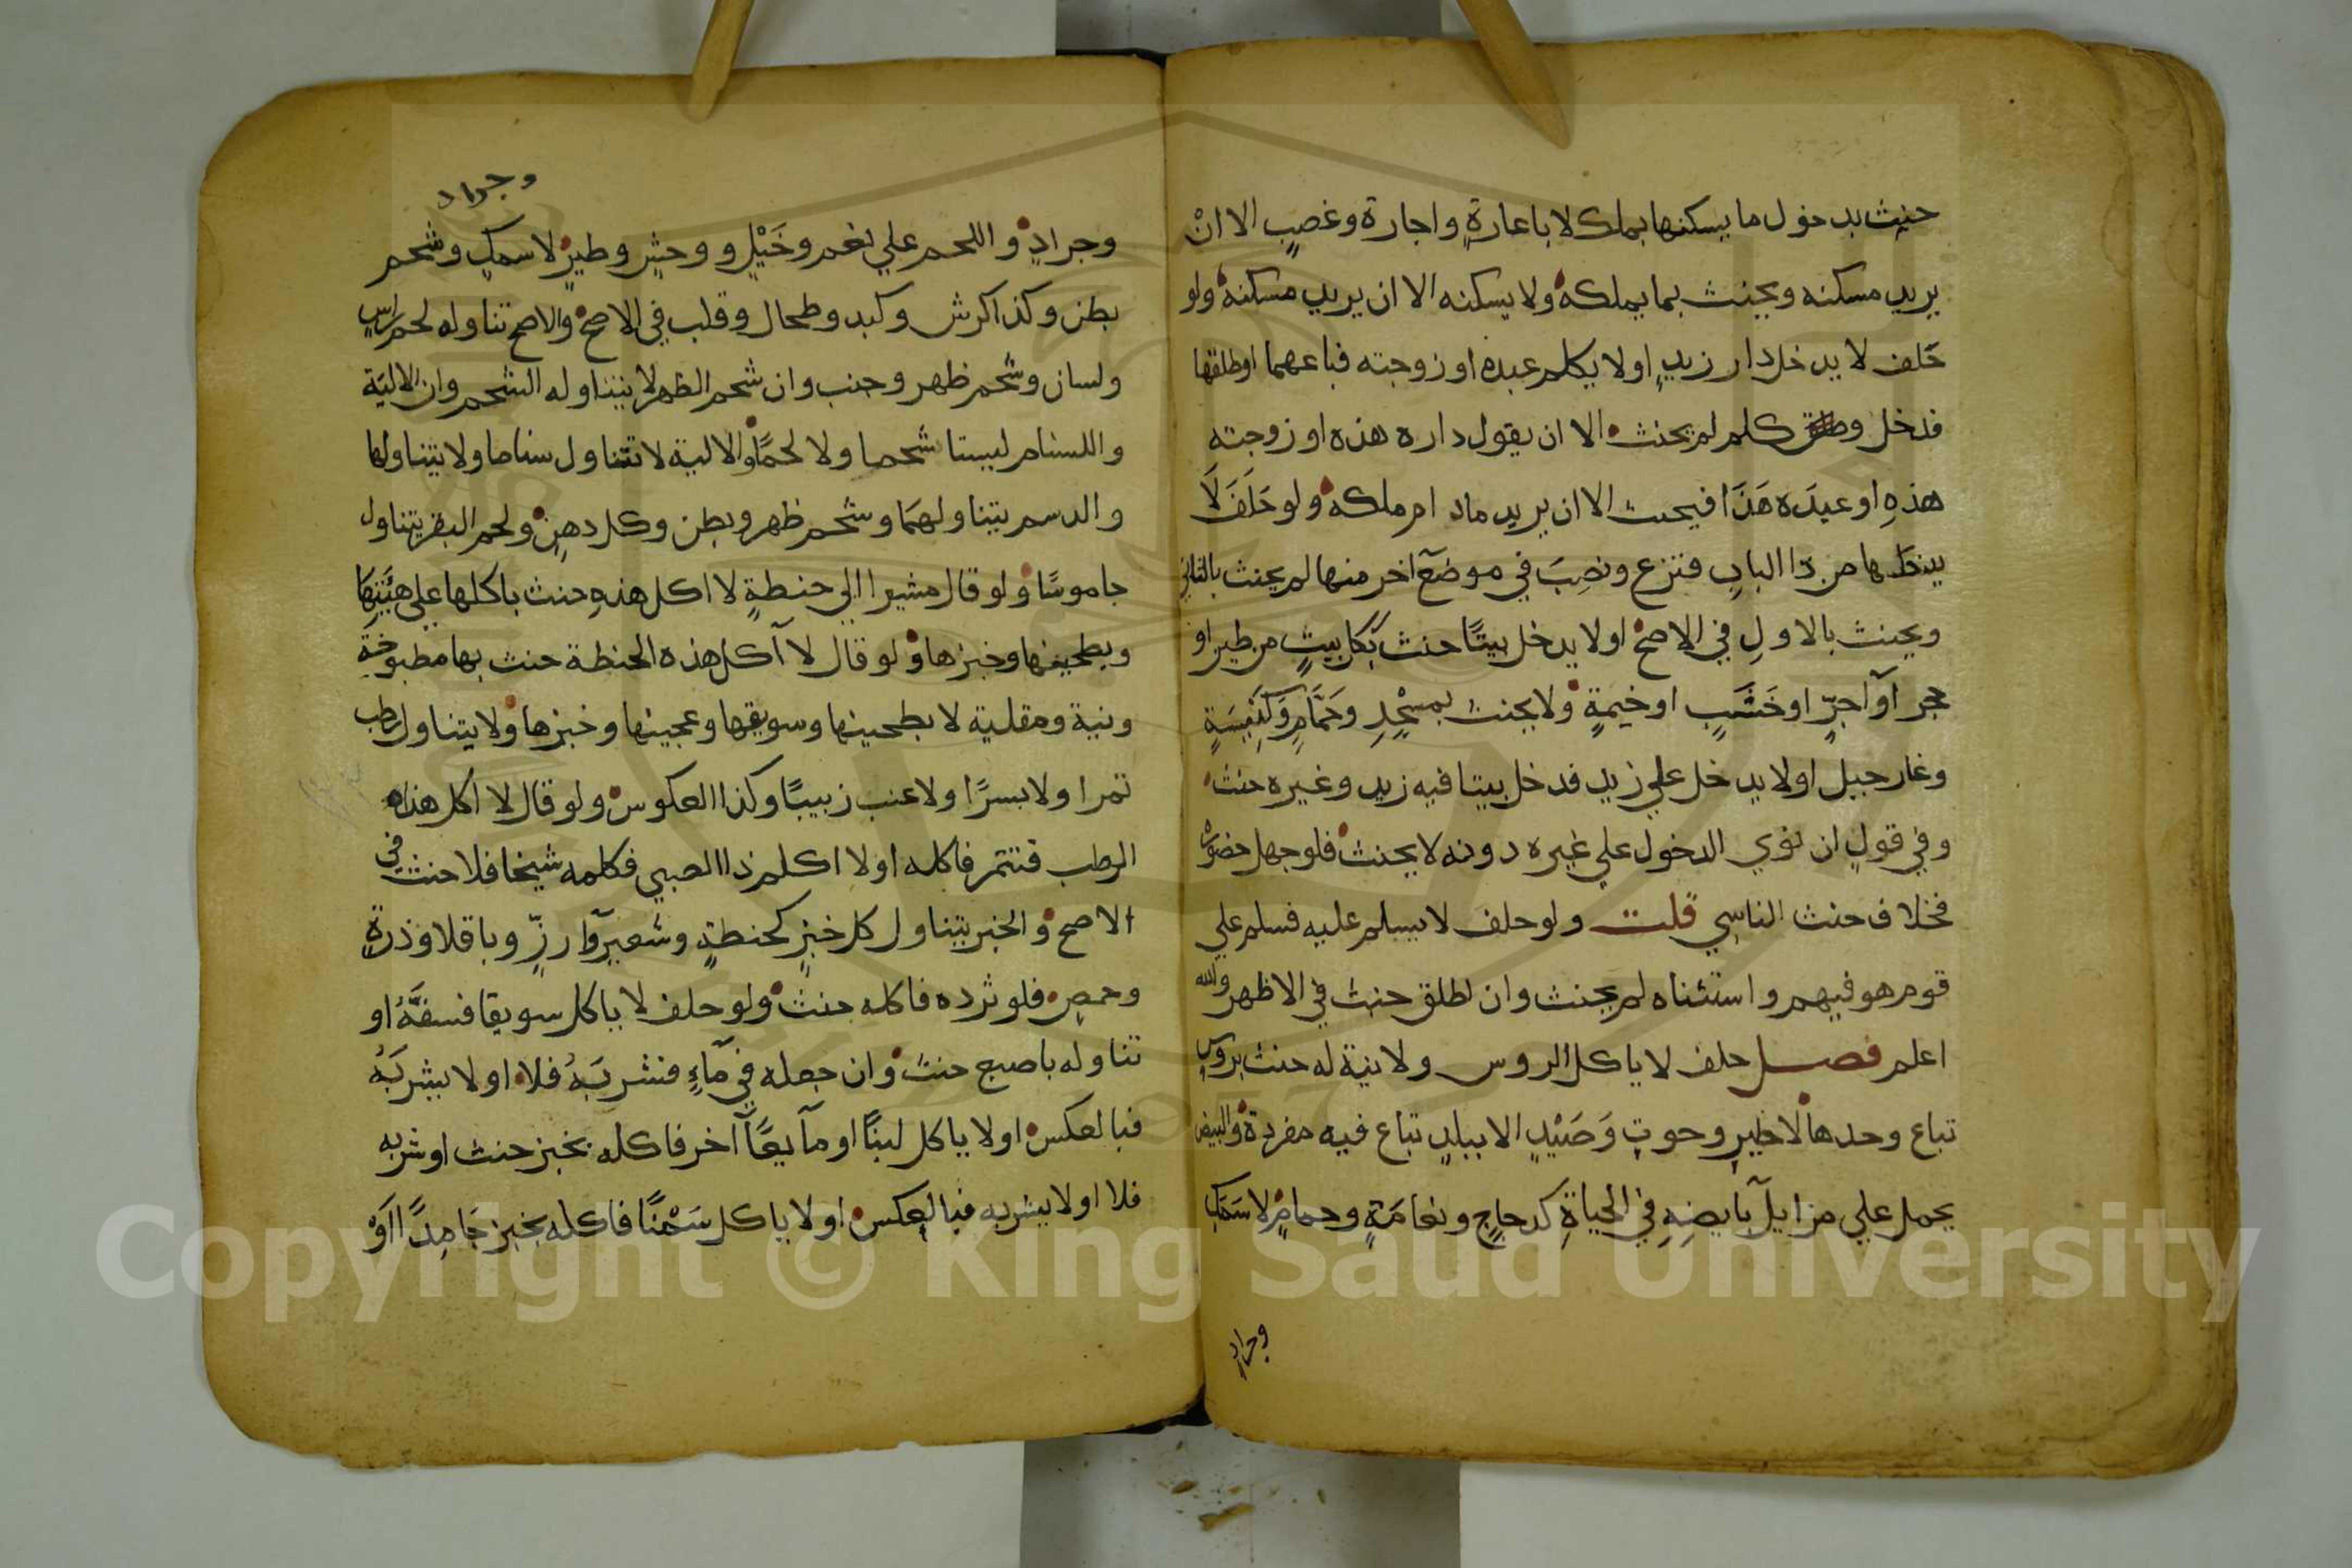 حنث بدخول ما يسكنها بملك لا باعارةٍ واجارة وغصبٍ الا انْ
يريد مسكنه ويحنث بما يملكه ولا يسكنه الا ان يريد مسكنه ولو
حَلف لا يدخل دار زيدٍ او لا يكلم عبده او زوجته فباعهما او طلقها
فدخل وكلم لم يحنث الا ان يقول داره هذه او زوجته
هذهِ او عبدَه هَذَا فيحنث الا ان يريد ما دام ملكه ولو حَلَفَ لَا
يدخلها من ذا البابِ فنزع ونصِبَ في موضع آخر منها لم يحنث بالثاني
ويحنث بالاولِ في الاصح او لا يدخل بيتًا حنث بكل بيتٍ من طين او
حجر او آجرٍّ او خَشَبٍ او خيمةٍ ولا يحنث بمسْجدِ وحَمَّامٍ وكَنِيسَةٍ
وغار جبل او لا يدخل علي زيد فدخل بيتا فيه زيد وغيره حنث
وفي قولٍ ان نوي الدخول علي غيره دونه لا يحنث فلو جهل حضورهْ
فخلاف حنث الناسِي قلت ولو حلف لا يسلم عليه فسلم علي
قوم هو فيهم واستثناه لم يحنث وان اطلق حنث في الاظهر والله
اعلم فصل حلف لا ياكل الروس ولا نية له حنث بروسٍ
تباع وحدها لا طيرٍ وحوتٍ وَصَيْدٍ الا ببلدٍ تباع فيه مفردة والبيض
يحمل علي مزايل بايضِهِ في الحياةِ كدجاجٍ ونعامَةٍ وحمامٍ لا سَمَكٍ
وجراد
وجراد
وجرادٍ واللحم علي نعم وخَيْلٍ و وحشٍ وطيرٍ لا سمكٍ وشحم
بطن وكذا كرش وكبد وطحال وقلب في الاصح والاصح تناوله لحم راسٍ
ولسان وشحم ظهر وجنب وان شحم الظهر لا يتناوله الشحم وان الالية
والسنام ليستا شحما ولا لحمًا والالية لا تتناول سناما ولا يتناولها
والدسم يتناولهمَا وشحم ظهر وبطن وكل دهنٍ ولحم البقر يتناول
جاموسًا ولو قال مشيرا الي حنطةٍ لا اكل هذهِ حنث باكلها علي هيْئتِهَا
وبطحينها وخبزها ولو قال لا آكل هذه الحنطة حنث بها مطبوخةَ
ونية ومقلية لا بطحينها وسويقها وعجينها وخبزها ولا يتناول رطب
تمرا ولا بسرًا ولا عنب زبيبًا وكذا العكوس ولو قال لا اكل هذا
الرطب فتتمر فاكله او لا اكلم ذا الصبي فكلمه شيخا فلا حنث في
الاصح والخبز يتناول كل خبزٍ كحنطةٍ وشعيرٍ وارزٍّ وباقلا وذرةٍ
وحمص فلو ثرده فاكله حنث ولو حلف لا ياكل سويقا فسفَّهُ او
تناوله باصبع حنث وان جعله في مآءٍ فشربَهُ فلا او لا يشربَهُ
فبالعكس او لا ياكل لبنًا او مآيعًا آخر فاكله بخبز حنث او شربه
فلا او لا يشربه فبالعكس او لا ياكل سَمْنًا فاكله بخبز جَامِدًا اوْ
Copyright © King Saud University